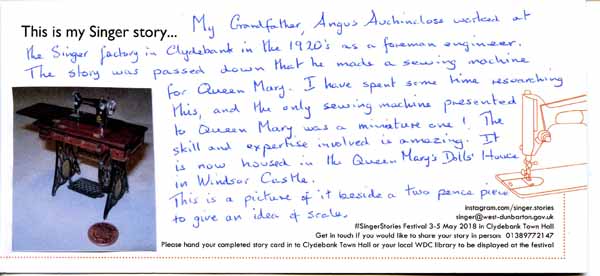 This is my Singer story... My Grandfather, Angus Auchincloss worked at
the Singer factory in Clydebank in the 1920's as a foreman engineer.
The story was passed down that he made a sewing machine
for Queen Mary. I have spent some time researching
this, and the only sewing machine presented
to Queen Mary was a miniature one! The
skill and expertise involved is amazing. It
is now housed in the Queen Mary's Dolls' House
in Windsor Castle.
This is a picture of it beside a two pence piece
to give an idea of scale.
instagram.com/singer.stories
singer@west-dunbarton.gov.uk
#SingerStories Festival 3-5 May 2018 in Clydebank Town Hall
Get in touch if you would like to share your story in person: 01389772147
Please hand your completed story card in to Clydebank Town Hall or your local WDC library to be displayed at the festival